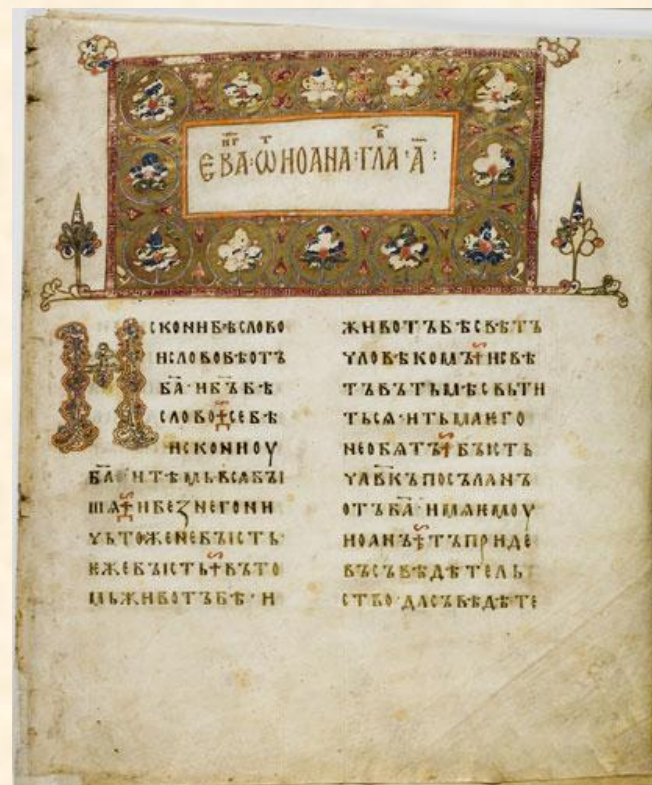 ЄВАⷩ҇ⷢ҇·Ѿⷮ ИОАНА·ГЛАⷡ҇·А҃:
ИСКОНИБѢСЛОВО
ИСЛОВОБѢОТЪ
БА҃·ИБЪ҃БѢ
СЛОВО⁘СЕБѢ
ИСКОНИОУ
БА҃·ИТѢМЬВСѦБЪІ
ШѦ⁘ИБЕЗНЕГОНИ
ЧЬТОЖЕНЕБЪІСТЬ·
ѤЖЕБЪІСТЬ⁘ВЪТО
МЬЖИВОТЪБѢ·И
ЖИВОТЪБѢСВѢТЪ
ЧЛОВѢКОМЪ⁘ИСВѢ
ТЪВЪТЬМѢСВЬТИ
ТЬСѦ·ИТЬМАѤГО
НЕОБѦТЪ⁘БЪІСТЬ
ЧЛ҃ВКЪПОСЪЛАНЪ
ОТЪБА҃·ИМѦѤМОУ
ИОАНЪ⁘ТЪПРИДЕ
ВЪСЪВѢДѢТЕЛЬ
СТВО·ДАСЪВѢДѢТЕ